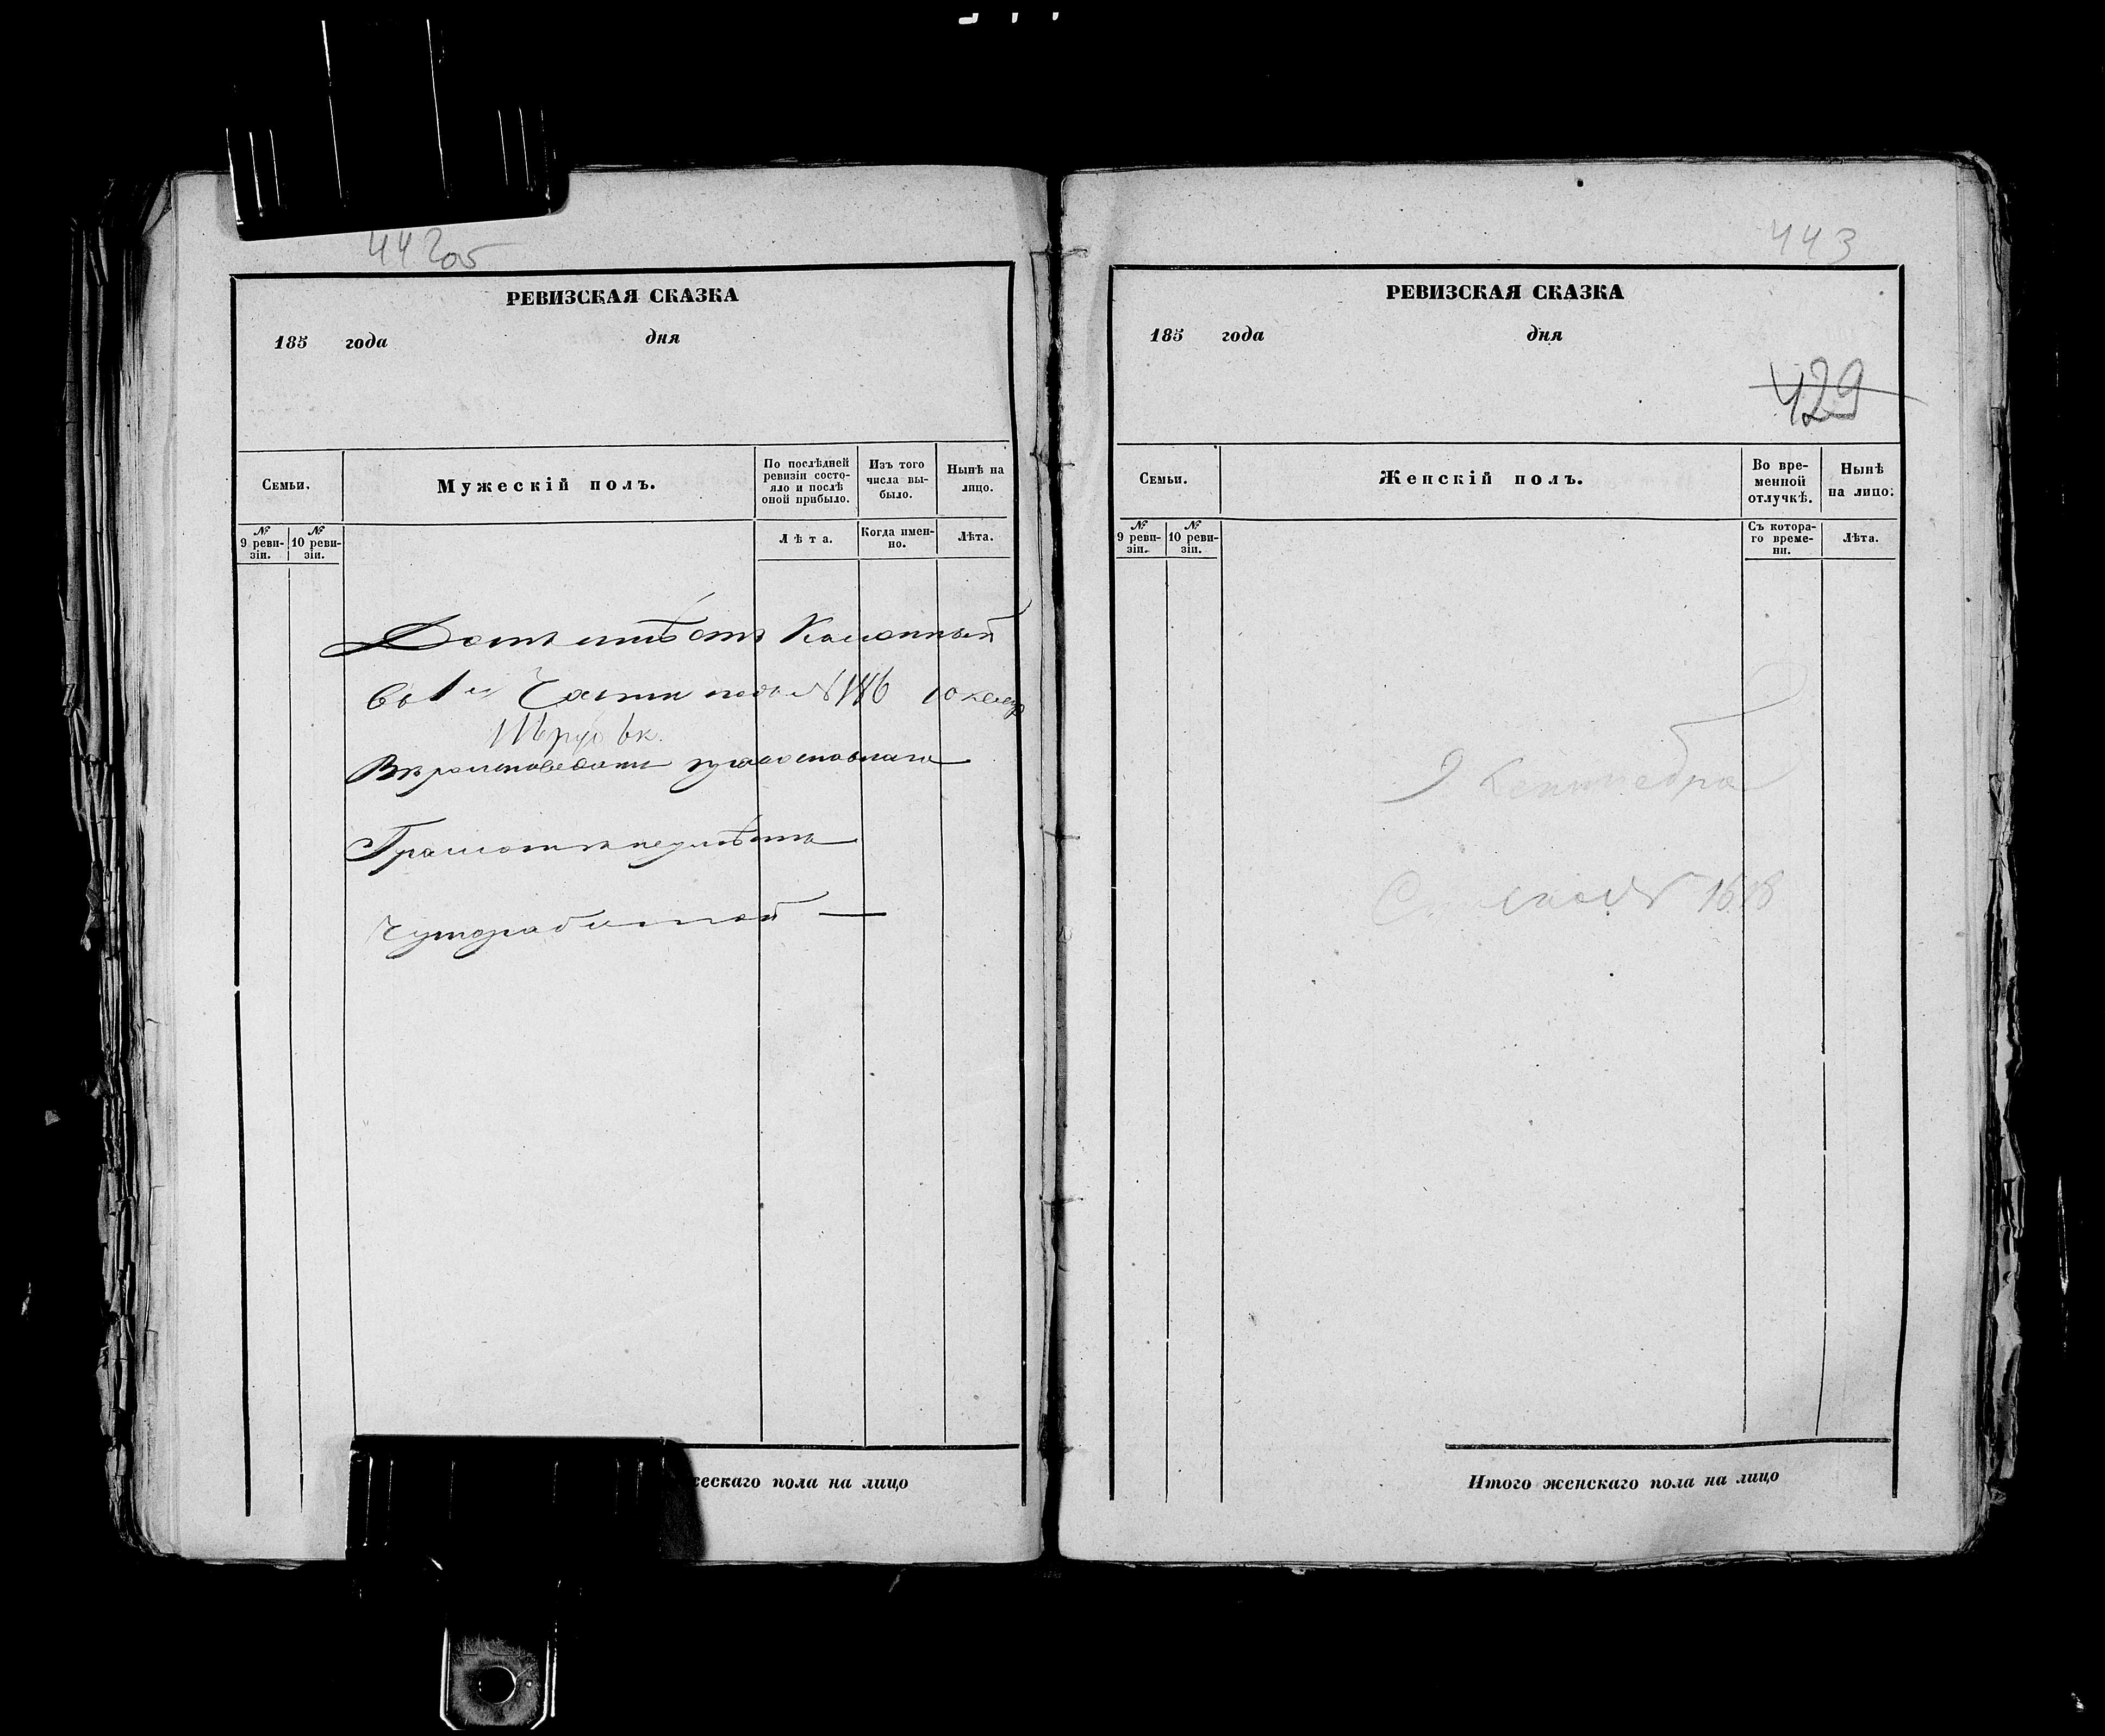 442об
РЕВИЗСКАЯ СКАЗКА
185 года дня
Семьи.
Мужескій полъ.
По послѣдней ревизіи состо-
яло и послѣ оной прибыло.
Изъ того числа вы-
было.
Нынѣ на лицо.
№ 9 реви-
зіи.
№ 10 реви-
зіи.
Лѣта.
Когда имен-
но.
Лѣта.
Домъ имѣетъ Каменный
въ 1й Части подъ № 116
116 руб
Вѣроисповеданія православнаго
Грамотѣ неумѣетъ
ескаго пола на лицо
443
РЕВИЗСКАЯ СКАЗКА
185 года дня
429
Семьи.
Женскій полъ.
Во вре-
менной отлучкѣ.
Нынѣ на лицо.
№ 9 реви-
зіи.
№ 10 реви-
зіи.
Съ котора-
го време-
ни.
Лѣта.
9 Сентебра
№ 1618
Итого женскаго пола на лицо